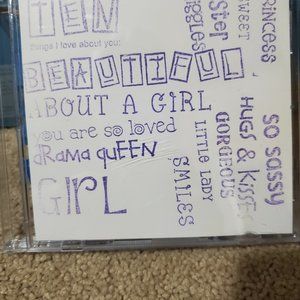 TEN
things I love about you:
BEAUTIFUL
ABOUT A GIRL
you are so loved
drama queen
GIRL
SWEET
PRINCESS
SMILES
Little Lady
GORGEOUS
HUGS & KISSES
SO SASSY